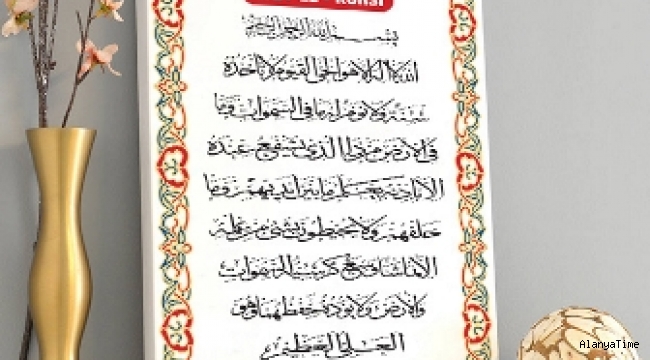 بسم الله الرحمن الرحيم
الله لا اله الا هو الحي القيوم لا تأخذه
سنة ولا نوم له ما في السموات وما
في الارض من ذا الذي يشفع عنده
الا باذنه يعلم ما بين ايديهم وما
خلفهم ولا يحيطون بشئ من علمه
الا بما شاء وسع كرسيه السموات
والارض ولا يؤده حفظهما وهو
العلي العظيم
AlanyaTime